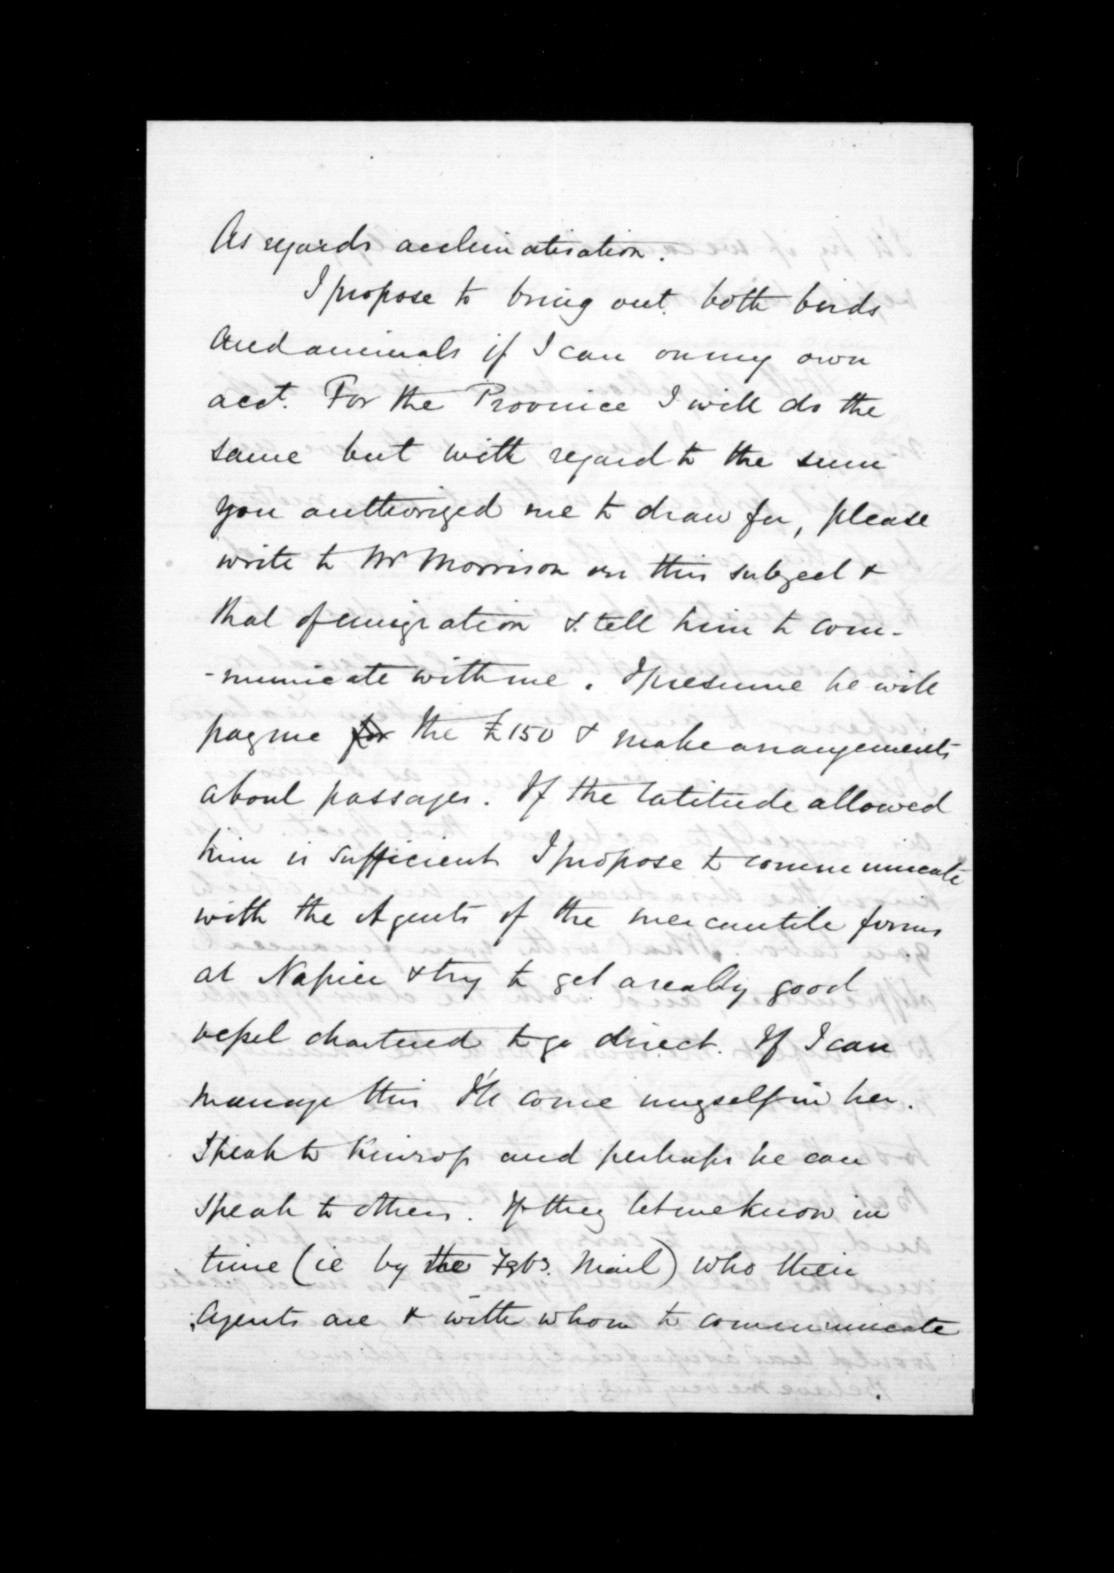 As regards acclimatisation.
I propose to bring out both birds
and animals if I can on my own
acct. For the Province I will do the
same but with regard to the sum
you authorized me to draw for, please
write to Mr Morrison on this subject &
that of emigration & tell him to com-
-municate with me. I presume he will
pay me for the £150 & make arrangements
about passages. If the latitude allowed
him is sufficient I propose to communicate
with the Agents of the mercantile firms
at Napier & try to get a really good
vessel chartered to go direct. If I can
manage this I'll come myself in her.
Speak to Kinross and perhaps he can
speak to others. If they let me know in
time (ie by the Feby. Mail) who their
Agents are & with whom to communicate